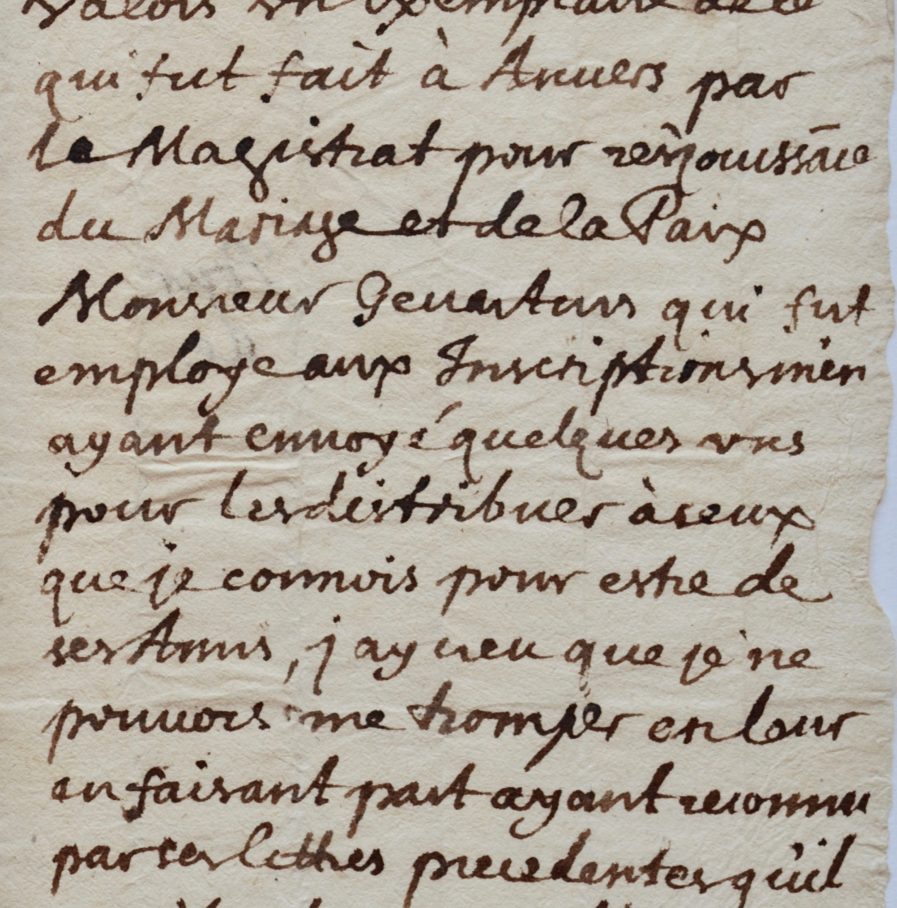 Valois un exemplaire de ce
qui fut fait à Anuers par
le Magistrat pour resjouissāce
du Mariage et de la Paix
Monsieur Geuartius qui fut
employe aux Inscriptions m'en
ayant enuoyé quelques uns
pour les distribuer à ceux
que je connois pour estre de
ses Amis, j ay creu que je ne
pouuois me tromper en leur
en faisant part ayant reconnu
par ses lettres precedentes qu'il